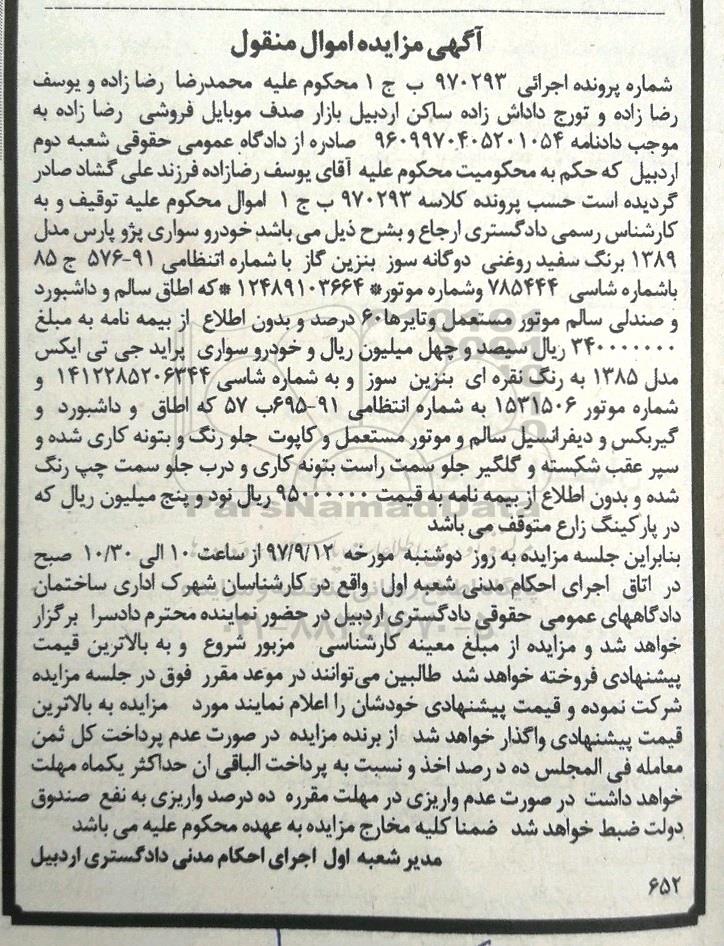 آگهی مزایده اموال منقول
شماره پرونده اجرائی ۹۷۰۲۹۳ ب ج ۱ محکوم علیه محمدرضا رضا زاده و یوسف
رضا زاده و تورج داداش زاده ساکن اردبیل بازار صدف موبایل فروشی رضا زاده به
موجب دادنامه ۹۶۰۹۹۷۰۴۰۵۲۰۱۰۵۴ صادره از دادگاه عمومی حقوقی شعبه دوم
اردبیل که حکم به محکومیت محکوم علیه آقای یوسف رضازاده فرزند علی گشاد صادر
گردیده است حسب پرونده کلاسه ۹۷۰۲۹۳ ب ج ۱ اموال محکوم علیه توقیف و به
کارشناس رسمی دادگستری ارجاع و بشرح ذیل می باشد خودرو سواری پژو پارس مدل
۱۳۸۹ برنگ سفید روغنی دوگانه سوز بنزین گاز با شماره انتظامی ۹۱-۵۷۶ ج ۸۵
باشماره شاسی ۷۸۵۴۴۴ وشماره موتور* ۱۲۴۸۹۱۰۳۶۶۴ *که اطاق سالم و داشبورد
و صندلی سالم موتور مستعمل وتایرها۶۰ درصد و بدون اطلاع از بیمه نامه به مبلغ
۳۴۰۰۰۰۰۰۰ ریال سیصد و چهل میلیون ریال و خودرو سواری پراید جی تی ایکس
مدل ۱۳۸۵ به رنگ نقره ای بنزین سوز و به شماره شاسی ۱۴۱۲۲۸۵۲۰۶۳۴۴ و
شماره موتور ۱۵۳۱۵۰۶ به شماره انتظامی ۹۱-۶۹۵ب ۵۷ که اطاق و داشبورد و
گیربکس و دیفرانسیل سالم و موتور مستعمل و کاپوت جلو رنگ و بتونه کاری شده و
سپر عقب شکسته و گلگیر جلو سمت راست بتونه کاری و درب جلو سمت چپ رنگ
شده و بدون اطلاع از بیمه نامه به قیمت ۹۵۰۰۰۰۰۰ ریال نود و پنج میلیون ریال که
در پارکینگ زارع متوقف می باشد
بنابراین جلسه مزایده به روز دوشنبه مورخه ۹۷/۹/۱۲ از ساعت ۱۰ الی ۱۰/۳۰ صبح
در اتاق اجرای احکام مدنی شعبه اول واقع در کارشناسان شهرک اداری ساختمان
دادگاههای عمومی حقوقی دادگستری اردبیل در حضور نماینده محترم دادسرا برگزار
خواهد شد و مزایده از مبلغ معینه کارشناسی مزبور شروع و به بالاترین قیمت
پیشنهادی فروخته خواهد شد طالبین می‌توانند در موعد مقرر فوق در جلسه مزایده
شرکت نموده و قیمت پیشنهادی خودشان را اعلام نمایند مورد مزایده به بالاترین
قیمت پیشنهادی واگذار خواهد شد از برنده مزایده در صورت عدم پرداخت کل ثمن
معامله فی المجلس ده د رصد اخذ و نسبت به پرداخت الباقی ان حداکثر یکماه مهلت
خواهد داشت در صورت عدم واریزی در مهلت مقرره ده درصد واریزی به نفع صندوق
دولت ضبط خواهد شد ضمنا کلیه مخارج مزایده به عهده محکوم علیه می باشد
مدیر شعبه اول اجرای احکام مدنی دادگستری اردبیل
۶۵۲
ParsNamadData